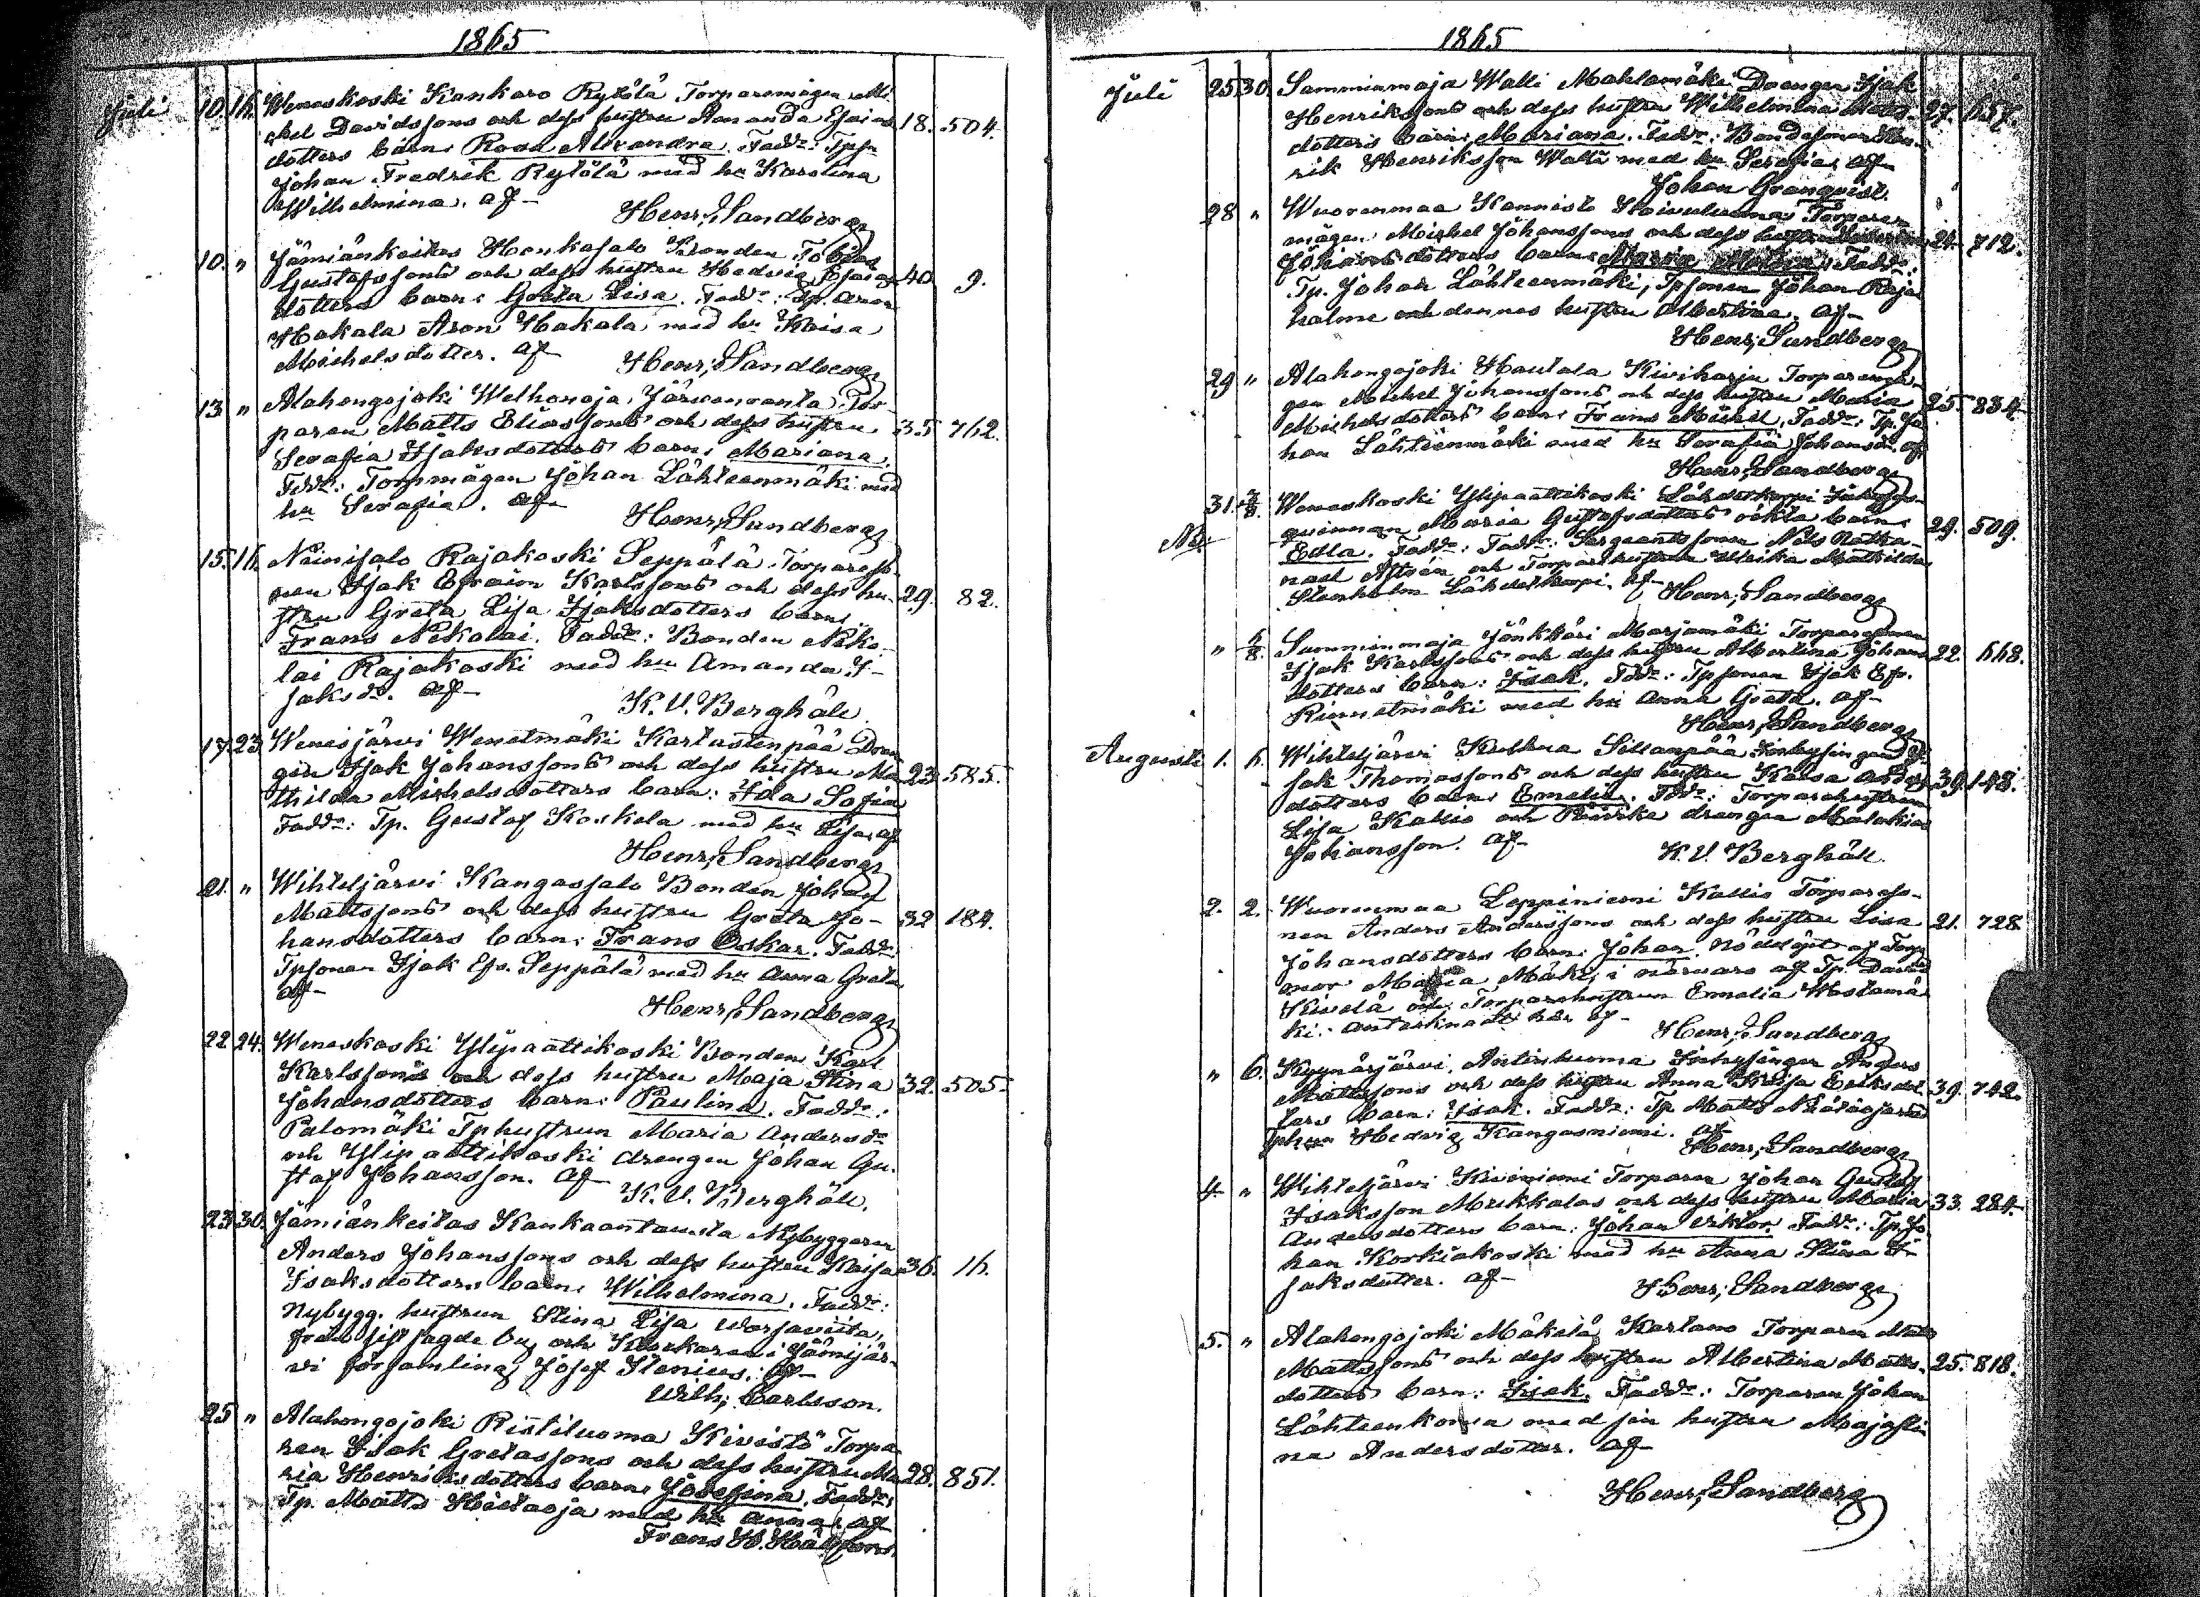 1865
Juli 10. 16. Weneskoski Kankaro Rytölä Torparemågen Mi-
chel Davidssons och dess hustru Amanda Esaias 18. 504.
dotters barn: Rosa Alexandra. Faddr:
Johan Fredrik Rytölä med hu Karolina
Wilhelmina. af
Henr: Sandberg
10. " Jämiänkeitas Honkasalo Bonden Tobias
Gustafssons och dess hustru Hedvig Esaias 40. 9.
dotters barn: Greta Lisa. Faddr: Tp.
Hakala Aron Hakala med hu Kaisa
Michelsdotter. af
Henr: Sandberg
13. " Alahongojoki Welhonoja Järwenranta Tor-
paren Matts Eliassons och dess hustru 35. 762.
Serafia Isaksdotters barn: Mariana.
Faddr: Torpmågen Johan Lähteenmäki med
hu Serafia. af
Henr: Sandberg
15. 16. Niinisalo Rajakoski Seppälä Torpareso-
nen Isak Efraim Karlssons och dess hu- 29. 82.
stru Greta Lisa Isaksdotters barn:
Frans Nikolai. Faddr: Bonden Niko-
lai Rajakoski med hu Amanda I-
saksdr. af
K. V. Berghäll
17. 23. Wenesjärvi Wenetmäki Karlustenpää Dren-
gen Isak Johanssons och dess hustru Ma- 23. 585.
thilda Michelsdotters barn: Ida Sofia
Faddr: Tp. Gustaf Koskela med hu Lisa. af
Henr: Sandberg
21. " Wihteljärvi Kangassalo Bonden Johan
Mattssons och dess hustru Greta Jo- 32. 184.
hansdotters barn: Frans Oskar. Faddr:
Tpsonen Isak Efr. Seppälä med hu Anna Greta
af
Henr: Sandberg
22. 24. Weneskoski Ylipaattikoski Bonden Karl
Karlssons och dess hustru Maja Stina 32. 505.
Johansdotters barn: Paulina. Faddr:
Palomäki Tphustrun Maria Andersdr
och Ylipaattikoski drengen Johan Gu-
staf Johansson. af
K. V. Berghäll.
23. 30. Jämiänkeitas Kankaantausta Nybyggaren
Anders Johanssons och dess hustru Kaisa 36. 16.
Isaksdotters barn: Wilhelmina. Faddr:
Nybygg. hustrun Stina Lisa
från sistsagde by och i Jämijär-
vi församling Josef Stenius. af
Wilh: Carlsson.
25. " Alahongojoki Ristiluoma Kivistö Torpa-
ren Isak Gretassons och dess hustru Ma- 28. 851.
ria Henriksdotters barn: Josefina. Faddr:
Tp. Matts Hietaoja med hu Anna. af
Frans H.
1865
Juli 25. 30. Samminmaja Walli Mahlamäki Drengen Isak
Henrikssons och dess hustru Wilhelmina Matts- 27. 657.
dotters barn: Mariana. Faddr: Bondesonen Hen-
rik Henriksson Walli med hu Serafia. af
Johan Granqvist.
28. " Wuorenmaa Kannisto Torpare-
mågen Michel Johanssons och dess hustru 24. 712.
Johansdotters barn: Maria Faddr:
Tp. Johan Lähteenmäki, Tpsonen Johan Raja-
halme och dennes hustru Albertina. af
Henr: Sandberg
29. " Alahongojoki Hautala Kiviharju Torparemå-
gen Michel Johanssons och dess hustru Maria 25. 834.
Michelsdotters barn: Frans Michel. Faddr: Tp. Jo-
han Lähteenmäki med hu Serafia Johansdr. af
Henr: Sandberg
31. Weneskoski Ylipaattikoski Lähdetkorpi
qvinnan Maria Gustafsdotters oäkta barn: 29. 509.
Edla. Faddr: Faddr: Sergeantssonen Nils Natha-
nael och Torparehustrun Ulrika Mathilda
Stenholm Lähdetkorpi. af
Henr: Sandberg
" 6/8. Samminmaja Jänkkäri Marjamäki Torparesonen
Isak Karlssons och dess hustru Albertina Johans- 22. 668.
dotters barn: Isak. Faddr: Tpsonen Isak Efr.
med hu Anna Greta. af
Henr: Sandberg
Augusti 1. 6. Wihteljärvi Kulkua Sillanpää Inhysingen I-
sak Thomassons och dess hustru Kaisa 39. 148.
dotters barn: Emelia. Faddr: Torparehustrun
Lisa Kallio och drengen Malakias
Johansson. af
K. V. Berghäll.
2. 2. Wuorenmaa Leppiniemi Kallio Torpareso-
nen Anders Anderssons och dess hustru Lisa 21. 728.
Johansdotters barn: Johan. Nöddöpt af Torp-
mor Maria Mäki, i närvaro af Tp. David
Kivelä och Torparehustrun Emelia Westamä-
ki. Antecknadt här af
Henr: Sandberg
" 6. Kyynärjärvi Antinluoma Inhysingen Anders
Mattssons och dess hustru Anna Kaisa Eriksdot- 39. 742.
ters barn: Isak. Faddr: Tp. Matts
Hedvig Kangasniemi. af
Henr: Sandberg
4. " Wihteljärvi Kiviniemi Torparen Johan Gustaf
Isaksson Mukkalas och dess hustru Maria 33. 284.
Andersdotters barn: Johan Viktor. Faddr: Tp. Jo-
han Korkiakoski med hu Anna Stina I-
saksdotter. af
Henr: Sandberg
5. " Alahongojoki Mäkelä Karlamo Torparen Matts
Mattssons och dess hustru Albertina Matts- 25. 818.
dotters barn: Isak. Faddr: Torparen Johan
Lähteenkorva med sin hustru Majasti-
na Andersdotter. af
Henr: Sandberg